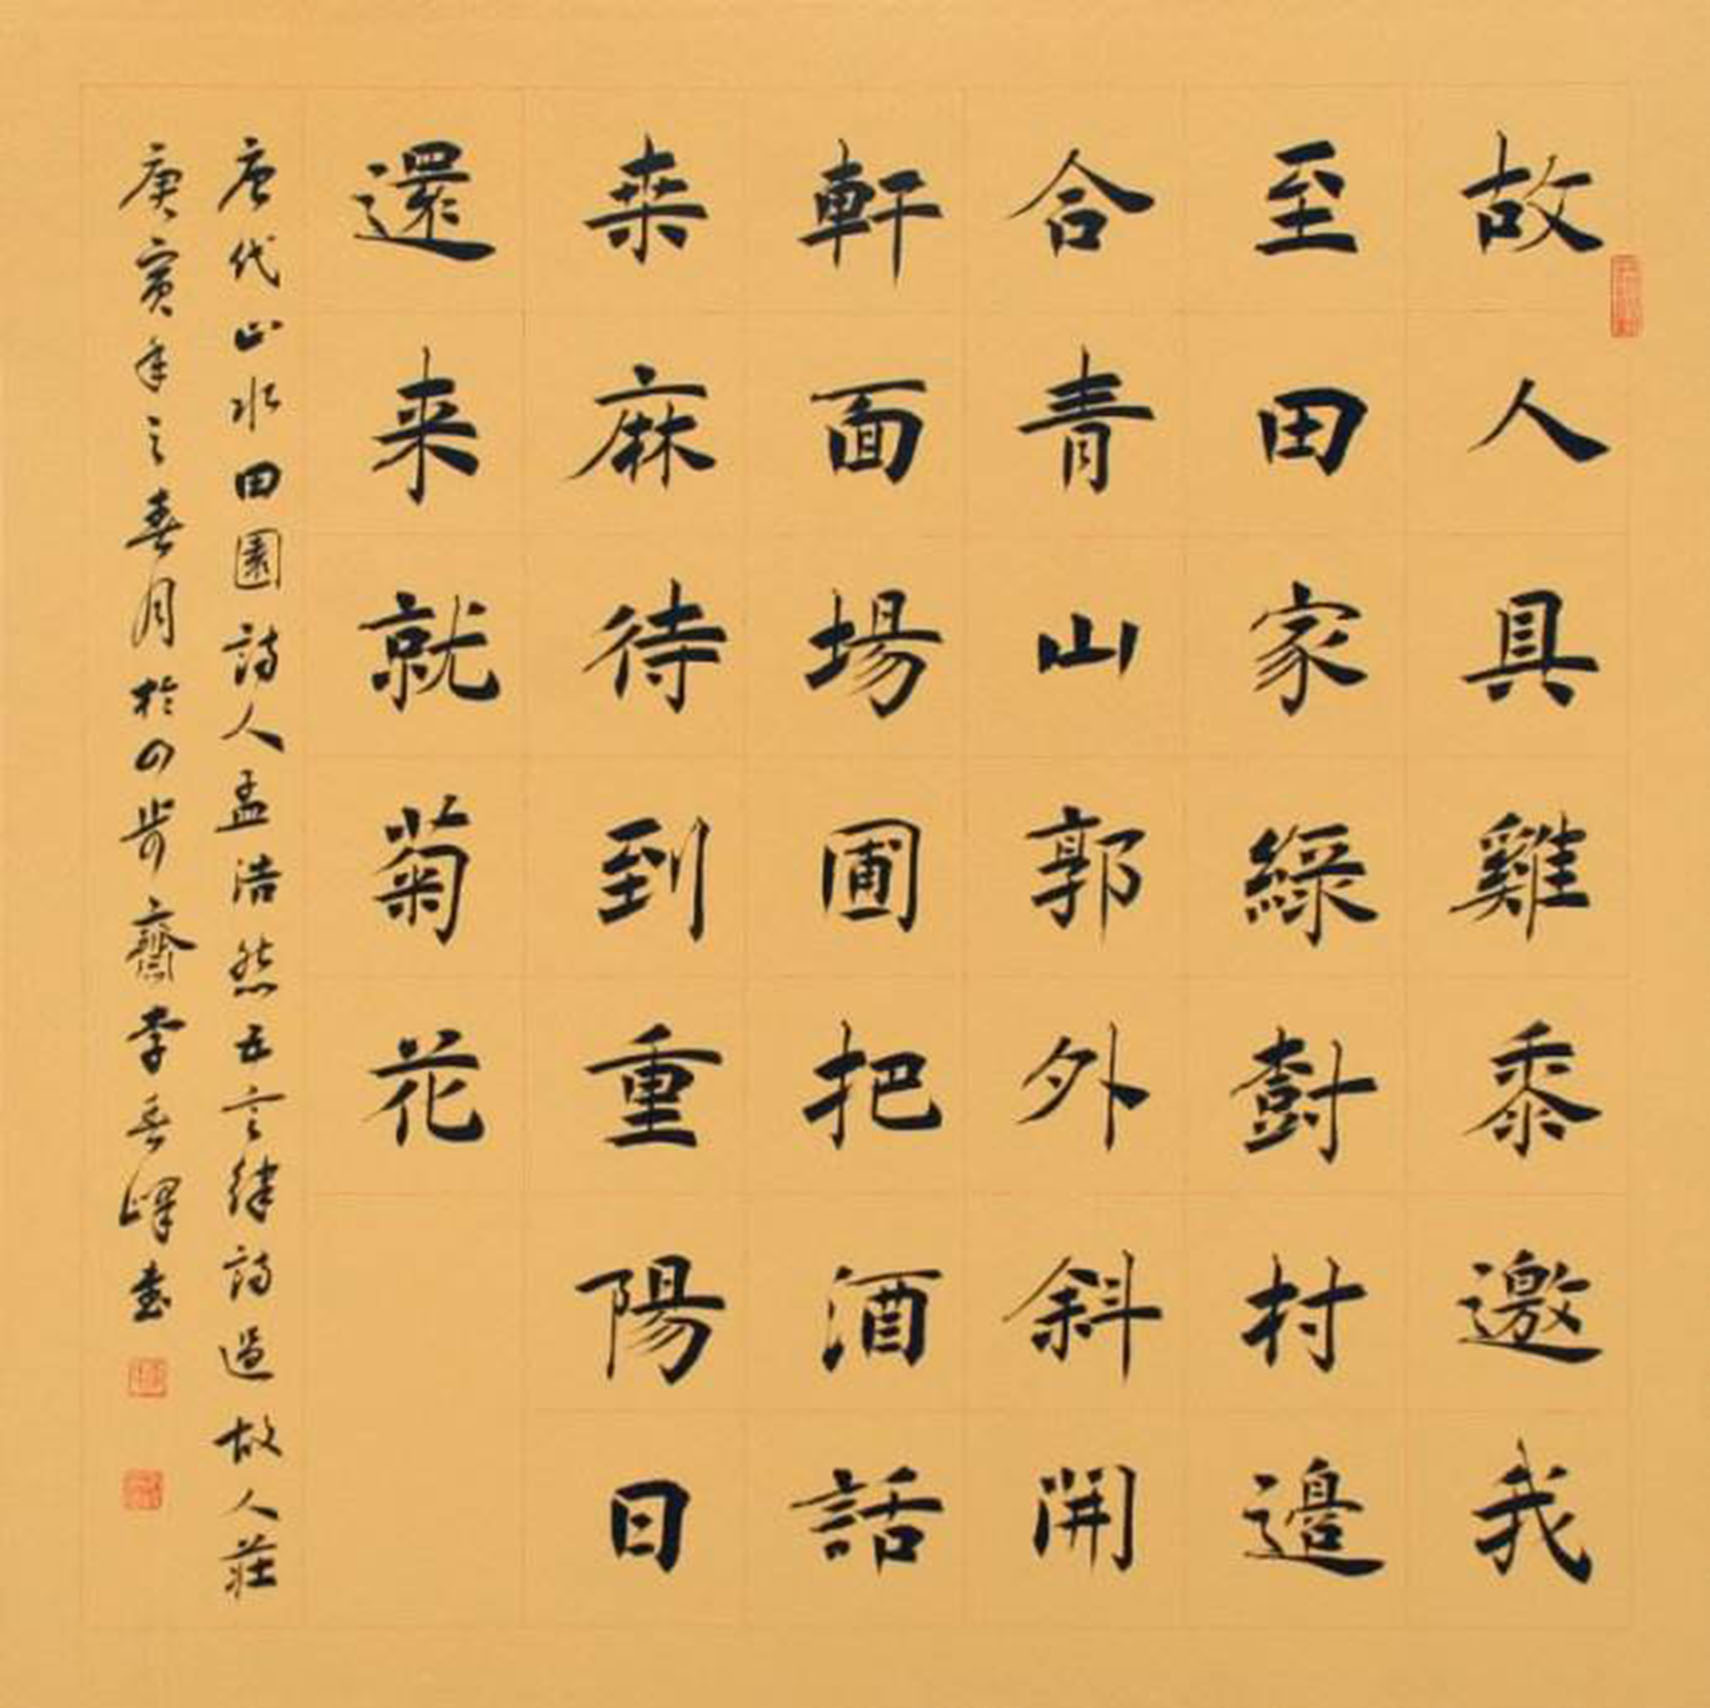 故人具雞黍邀我
至田家綠樹村邊
合青山郭外斜開
軒面場圃把酒話
桒麻待到重陽日
還来就菊花
唐代山水田園詩人孟浩然五言律詩過故人莊
庚寅年之春月於四步齋李岳嶧書